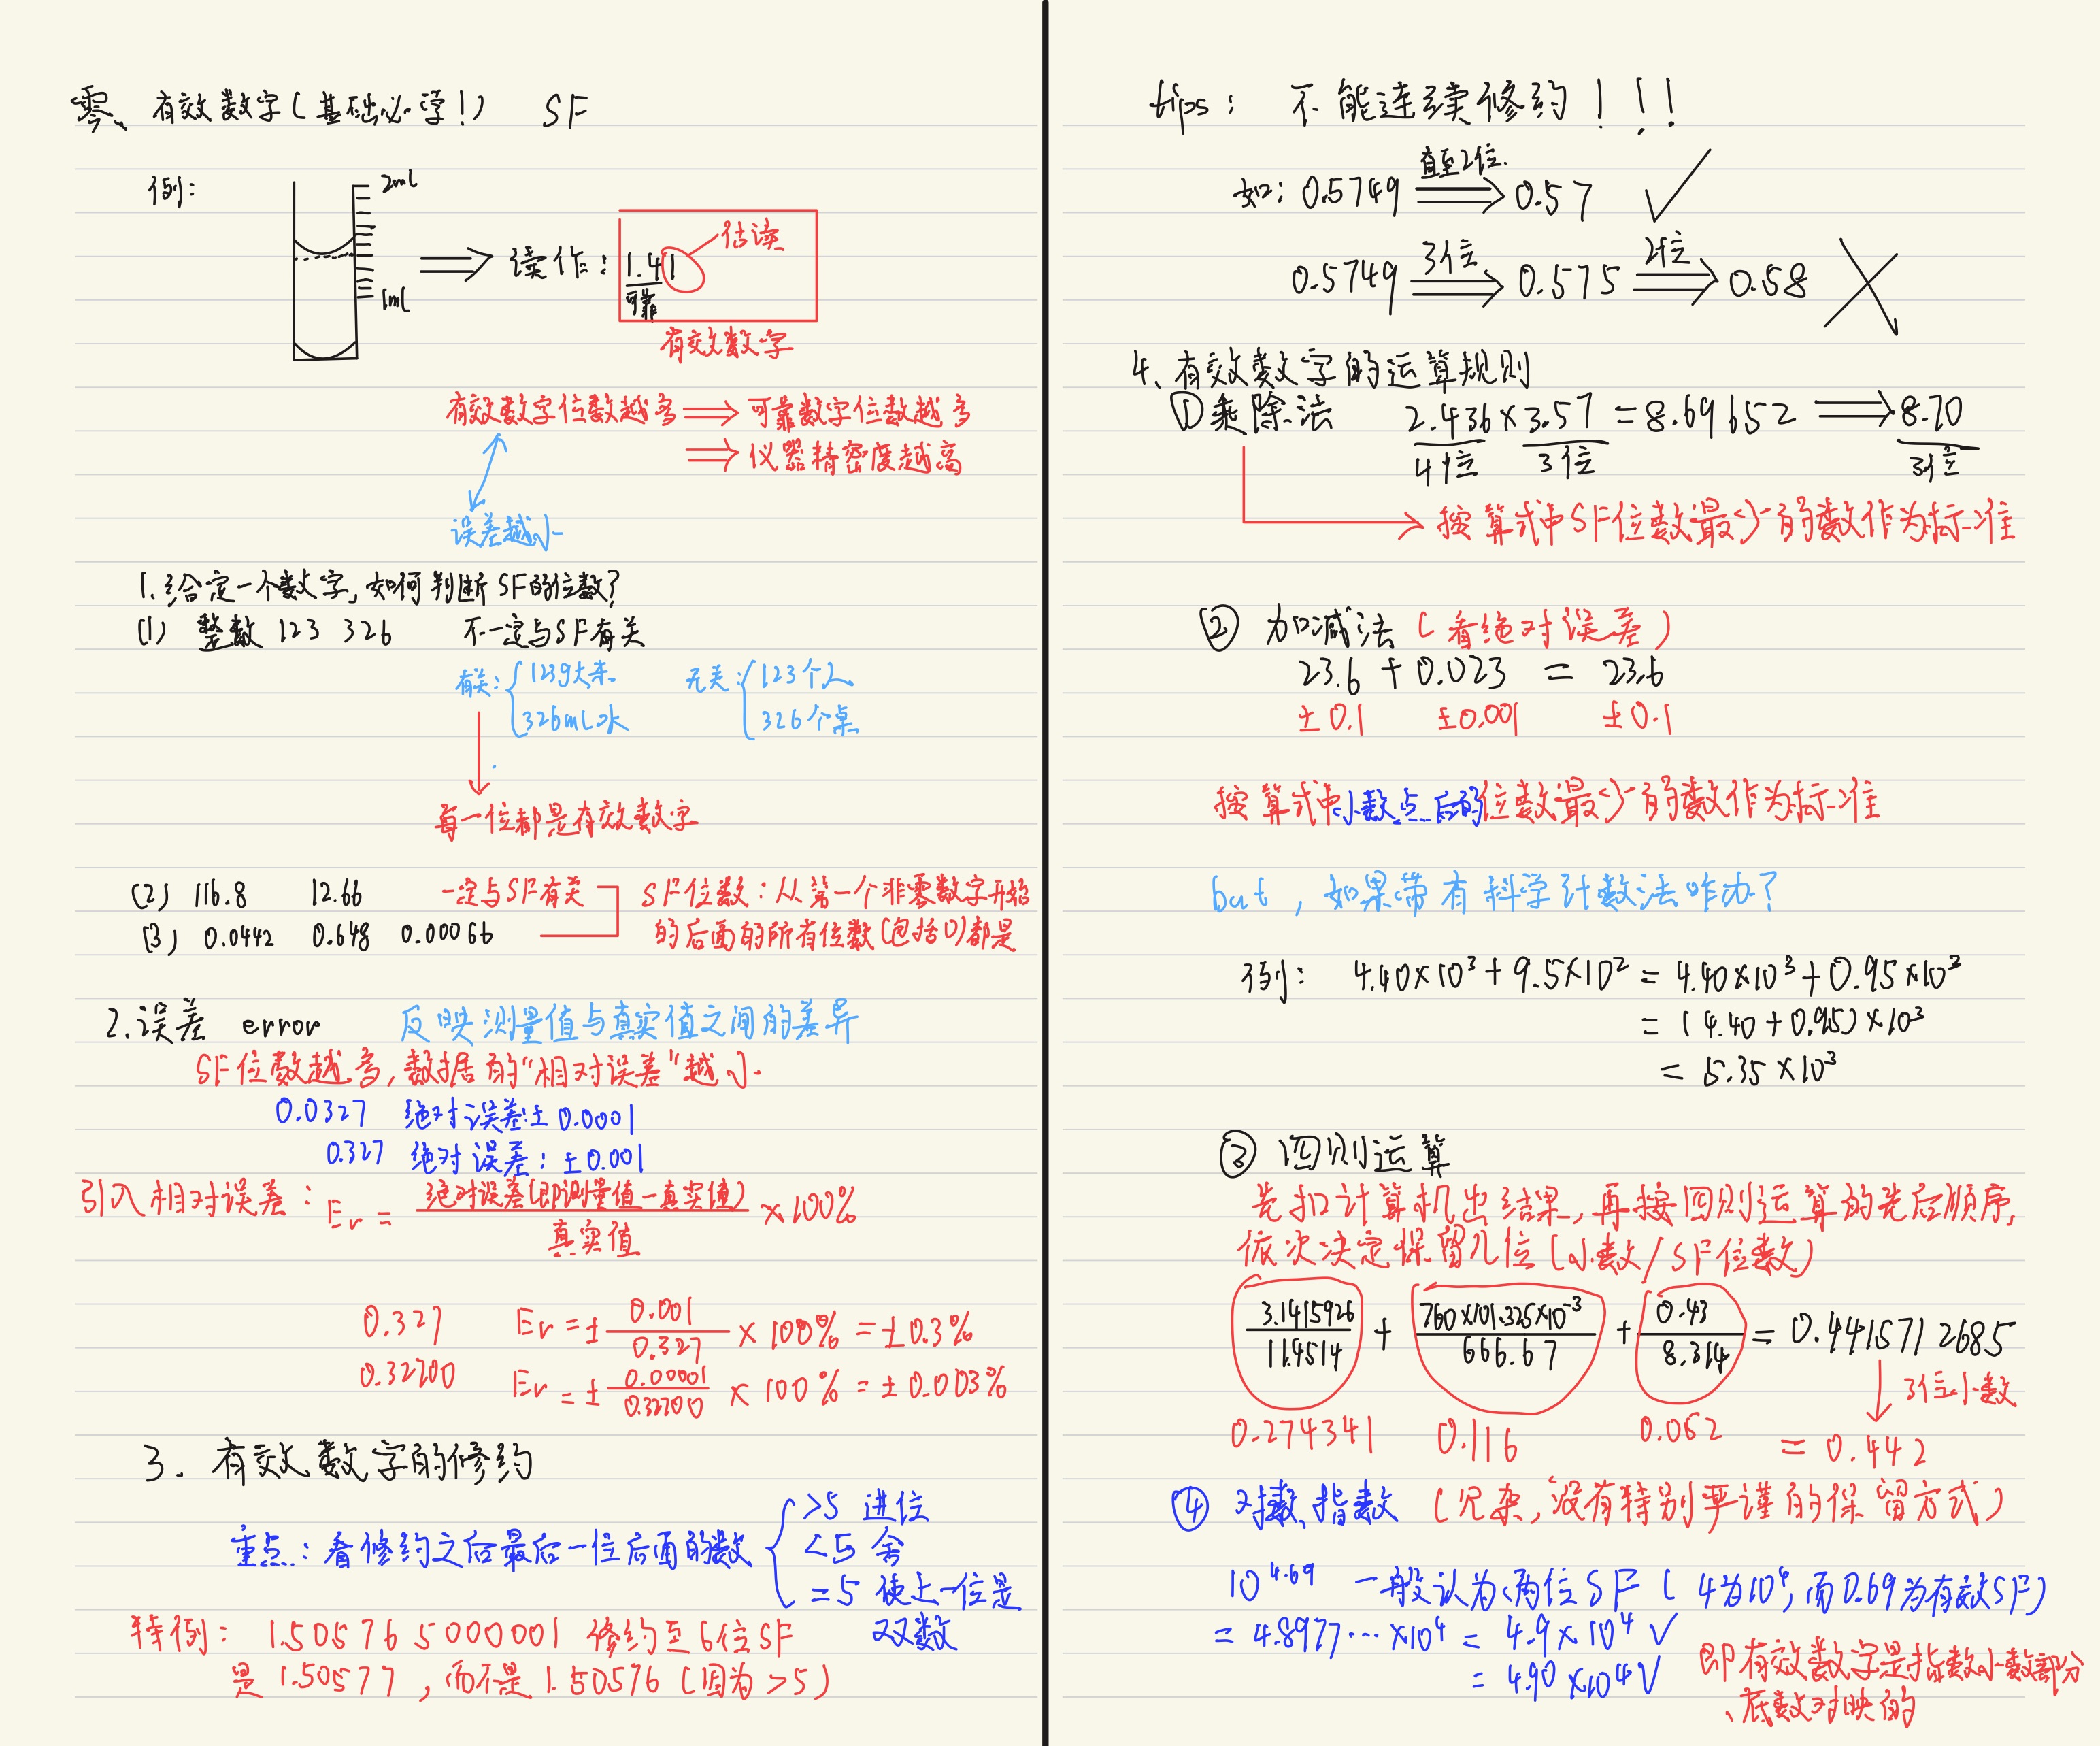 零、有效数字(基础必学!) SF
例:
2ml
1ml
⟹ 读作: 1.41
估读
可靠
有效数字
有效数字位数越多 ⟹ 可靠数字位数越多
⟹ 仪器精密度越高
误差越小
1.给定一个数字,如何判断SF的位数?
(1) 整数 123 326 不一定与SF有关
有关: { 123g大米
326mL水
无关: { 123个人
326个桌
每一位都是有效数字
(2) 116.8 12.66 一定与SF有关
(3) 0.0442 0.648 0.00066
SF位数:从第一个非零数字开始
的后面的所有位数(包括0)都是
2.误差 error 反映测量值与真实值之间的差异
SF位数越多,数据的“相对误差”越小.
0.0327 绝对误差:±0.0001
0.327 绝对误差:±0.001
引入相对误差: Er = 绝对误差(即测量值-真实值)/真实值 × 100%
0.327 Er = ± 0.001/0.327 × 100% = ±0.3%
0.32700 Er = ± 0.00001/0.32700 × 100% = ±0.003%
3. 有效数字的修约
重点:看修约之后最后一位后面的数 { >5 进位
<5 舍
=5 使上一位是
双数
特例: 1.505765000001 修约至6位SF
是1.50577,而不是1.50576(因为>5)
tips: 不能连续修约!!!
如: 0.5749 直至2位. ⟹ 0.57 ✓
0.5749 3位 ⟹ 0.575 2位 ⟹ 0.58 ×
4、有效数字的运算规则
①乘除法 2.436×3.57=8.69652 ⟹ 8.70
4位 3位 3位
按算式中SF位数最少的数作为标准
② 加减法(看绝对误差)
23.6 + 0.023 = 23.6
±0.1 ±0.001 ±0.1
按算式中小数点后的位数最少的数作为标准
but,如果带有科学计数法咋办?
例: 4.40×10³+9.5×10²=4.40×10³+0.95×10³
=(4.40+0.95)×10³
=5.35×10³
③ 四则运算
先扣计算机出结果,再按四则运算的先后顺序,
依次决定保留几位(小数/SF位数)
3.1415926/11.4514 + 760×101.325×10⁻³/666.67 + 0.43/8.314 = 0.4415712685
3位小数
0.274341 0.116 0.052 = 0.442
④ 对数、指数(冗杂,没有特别严谨的保留方式)
10^4.69 一般认为两位SF(4为10⁴,而0.69为有效SF)
=4.8977…×10⁴=4.9×10⁴✓
=4.90×10⁴✓
即有效数字是指数小数部分
、底数对映的